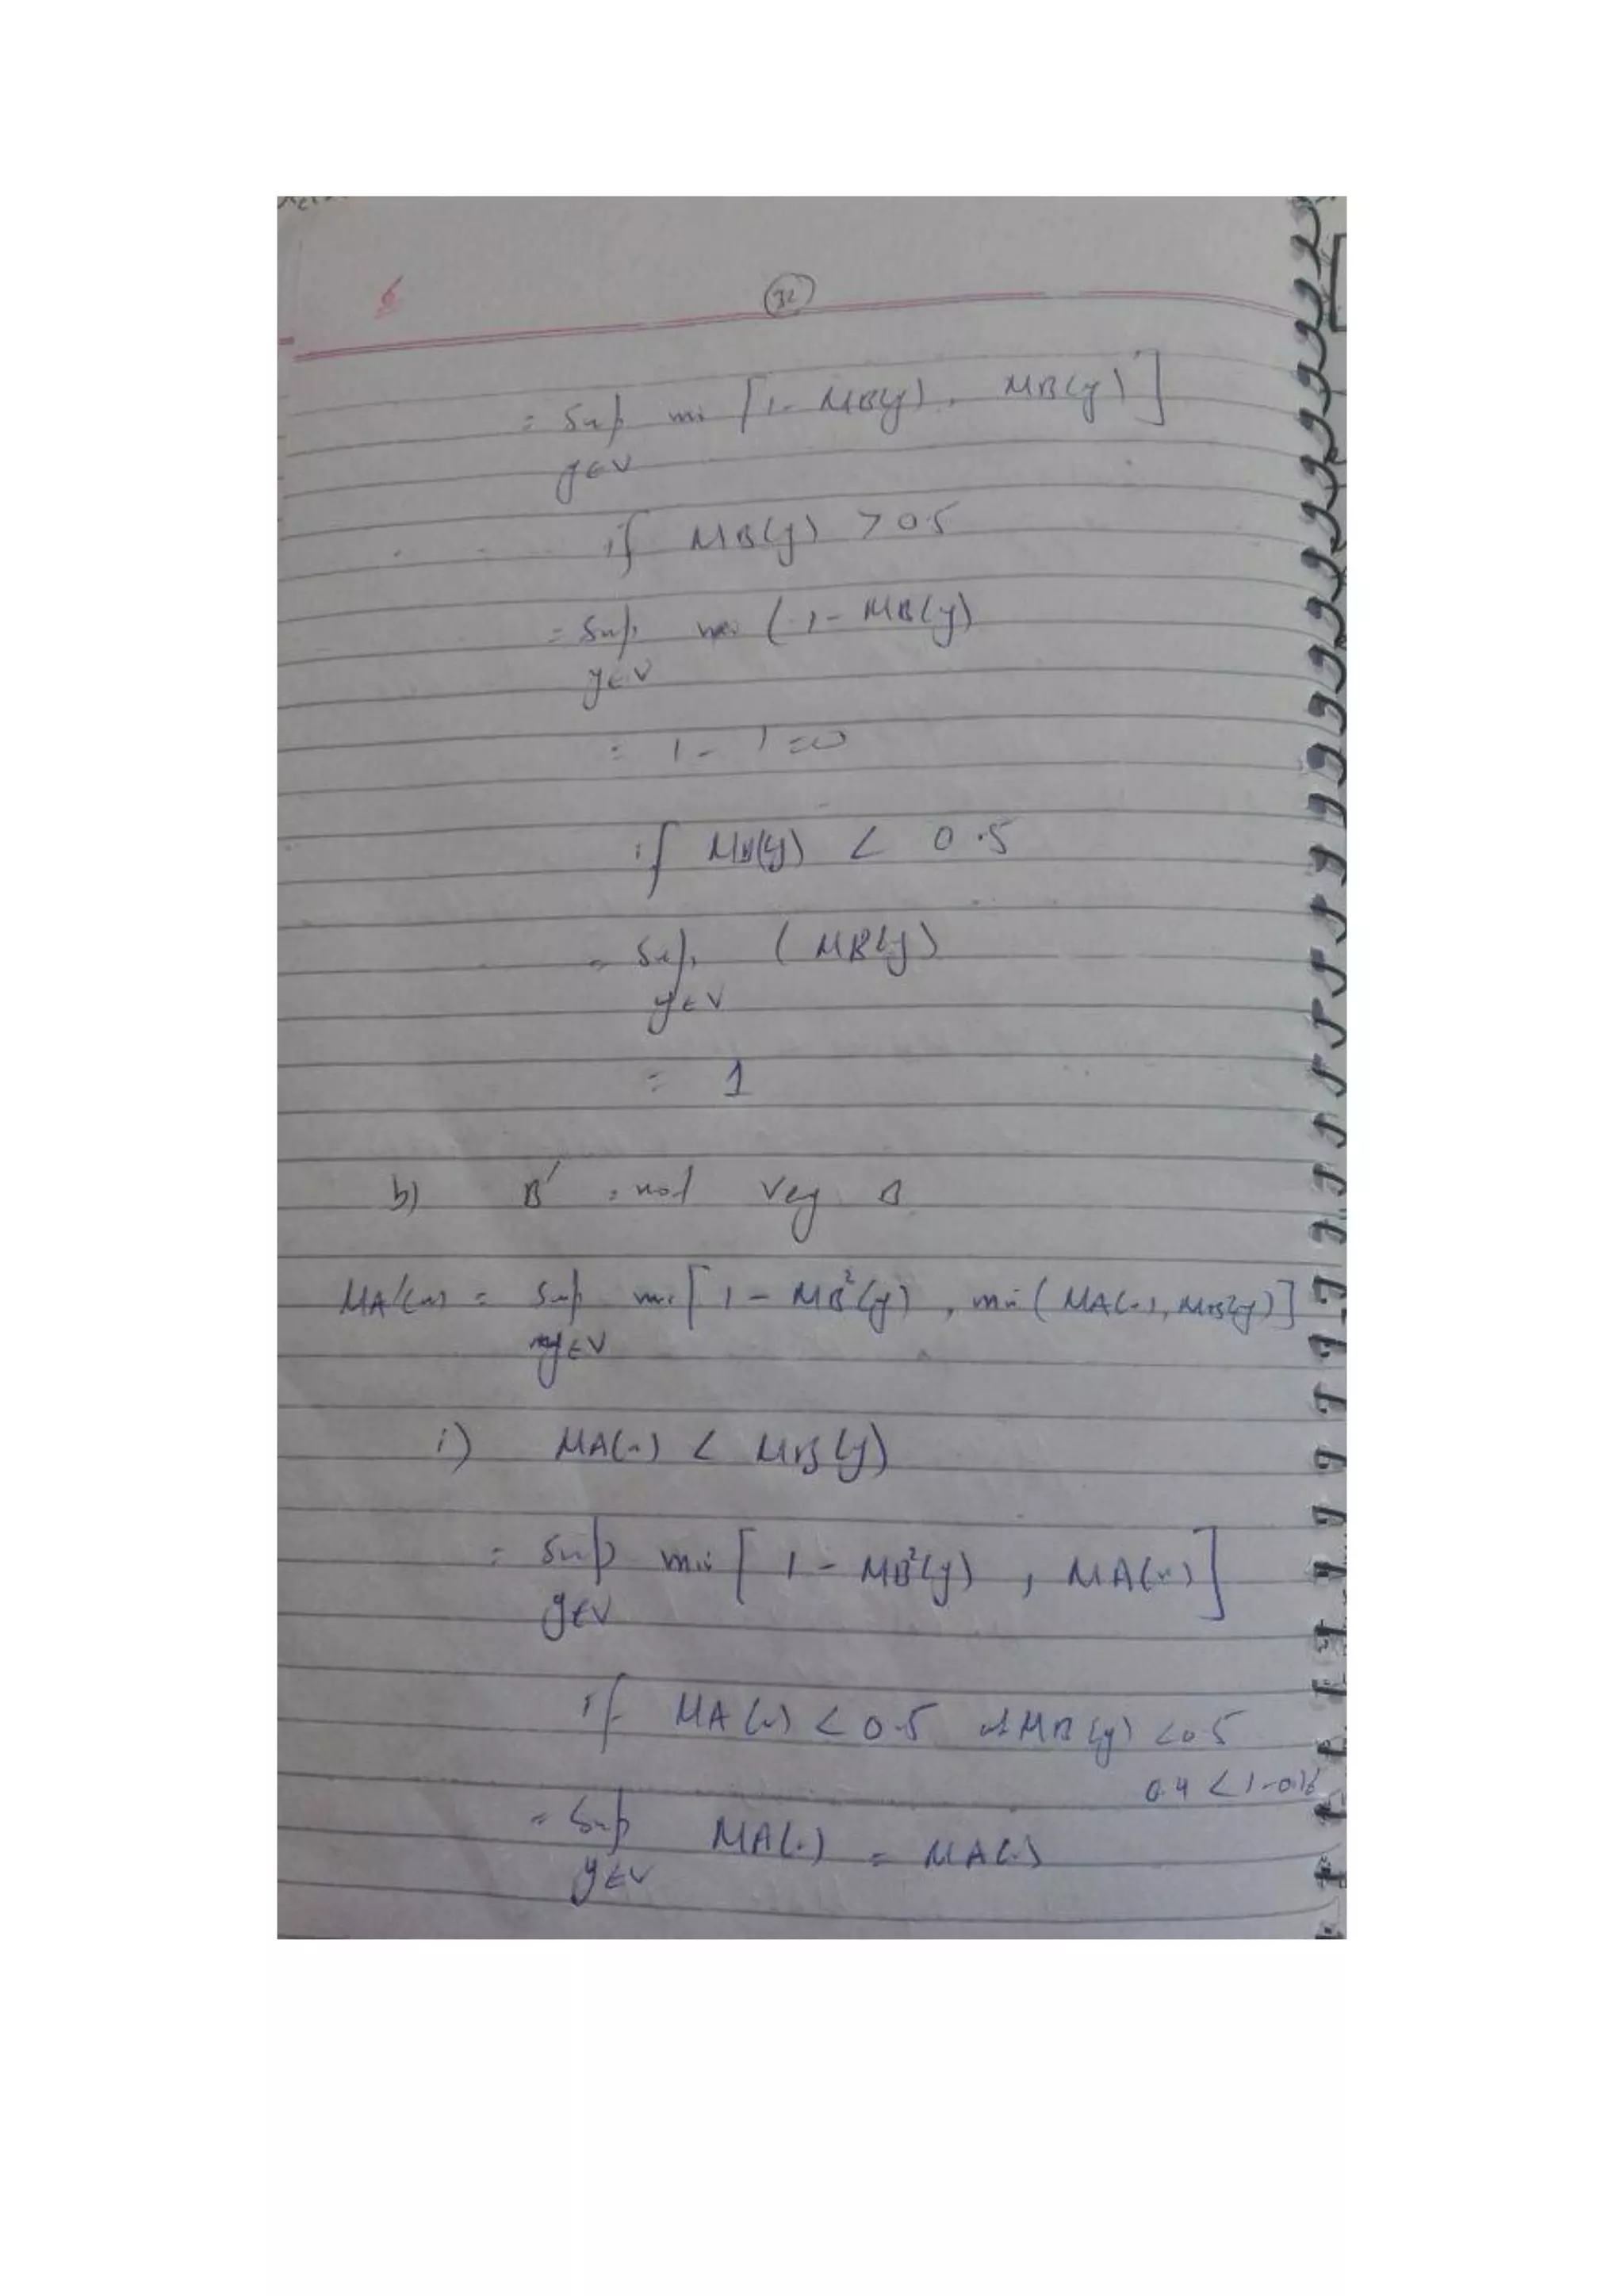 6
32
= Sup min [1 - MB(y), MB(y)]
y∈V
if MB(y) > 0.5
= Sup min (1 - MB(y)
y∈V
= 1 - 1 = 0
if MB(y) < 0.5
= Sup (MB(y)
y∈V
= 1
b) B' = not Very B
MA'(x) = Sup min [1 - MB²(y), min (MA(x), MB(y)]
y∈V
i) MA(x) < MB(y)
= Sup min [1 - MB²(y), MA(x)]
y∈V
if MA(x) < 0.5 MB(y) < 0.5
0.4 < 1-0.16
= Sup MA(x) = MA(x)
y∈V